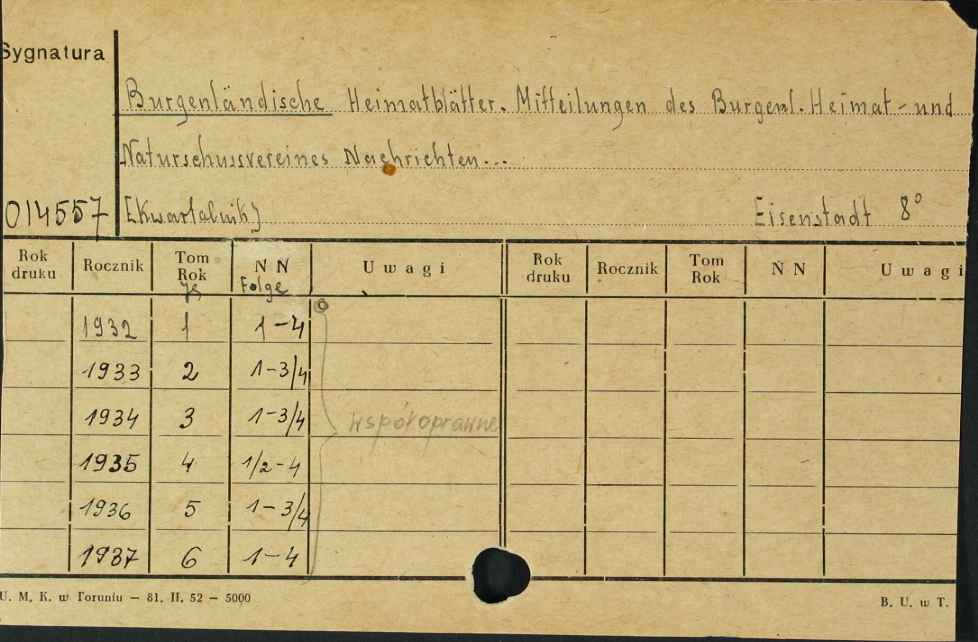 Sygnatura
Burgenländische Heimatblätter. Mitteilungen des Burgenl. Heimat- und
Naturschussvereines Nachrichten...
014557 [Kwartalnik] Eisenstadt 8°
Rok druku Rocznik Tom Rok Jg NN Folge Uwagi Rok druku Rocznik Tom Rok NN Uwagi
1932 1 1-4
1933 2 1-3/4
1934 3 1-3/4 współoprawne
1935 4 1/2-4
1936 5 1-3/4
1937 6 1-4
U. M. K. w Toruniu — 81. II. 52 — 5000 B. U. w T.